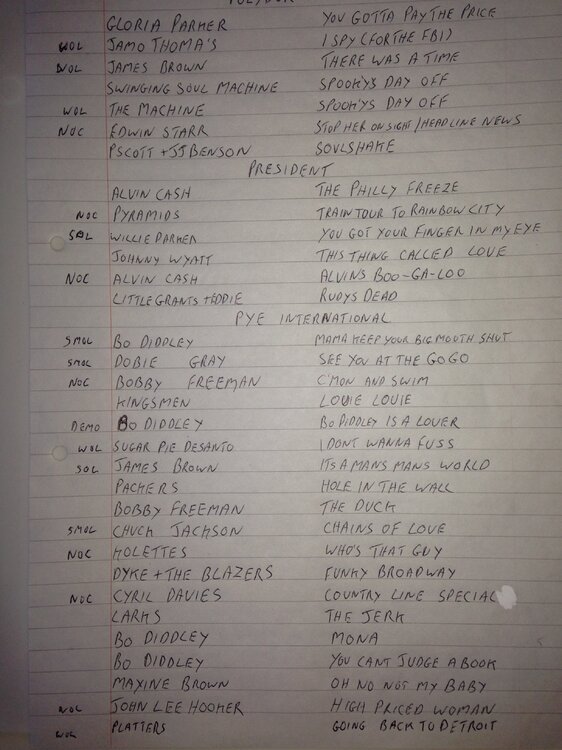 GLORIA PARKER YOU GOTTA PAY THE PRICE
WOL JAMO THOMA'S I SPY (FOR THE FBI)
WOL JAMES BROWN THERE WAS A TIME
SWINGING SOUL MACHINE SPOOKYS DAY OFF
WOL THE MACHINE SPOOKYS DAY OFF
NOC EDWIN STARR STOP HER ON SIGHT/HEADLINE NEWS
P SCOTT + JJ BENSON SOULSHAKE
PRESIDENT
ALVIN CASH THE PHILLY FREEZE
NOC PYRAMIDS TRAIN TOUR TO RAINBOW CITY
SOL WILLIE PARKER YOU GOT YOUR FINGER IN MY EYE
JOHNNY WYATT THIS THING CALLED LOVE
NOC ALVIN CASH ALVINS BOO-GA-LOO
LITTLE GRANTS + EDDIE RUDYS DEAD
PYE INTERNATIONAL
SMOL BO DIDDLEY MAMA KEEP YOUR BIG MOUTH SHUT
SMOL DOBIE GRAY SEE YOU AT THE GO GO
NOC BOBBY FREEMAN C'MON AND SWIM
KINGSMEN LOUIE LOUIE
DEMO BO DIDDLEY BO DIDDLEY IS A LOVER
WOL SUGAR PIE DESANTO I DONT WANNA FUSS
SOL JAMES BROWN ITS A MANS MANS WORLD
PACKERS HOLE IN THE WALL
BOBBY FREEMAN THE DUCK
SMOL CHUCK JACKSON CHAINS OF LOVE
NOC KOLETTES WHO'S THAT GUY
DYKE + THE BLAZERS FUNKY BROADWAY
NOC CYRIL DAVIES COUNTRY LINE SPECIAL
LARKS THE JERK
BO DIDDLEY MONA
BO DIDDLEY YOU CANT JUDGE A BOOK
MAXINE BROWN OH NO NOT MY BABY
NOC JOHN LEE HOOKER HIGH PRICED WOMAN
WOL PLATTERS GOING BACK TO DETROIT